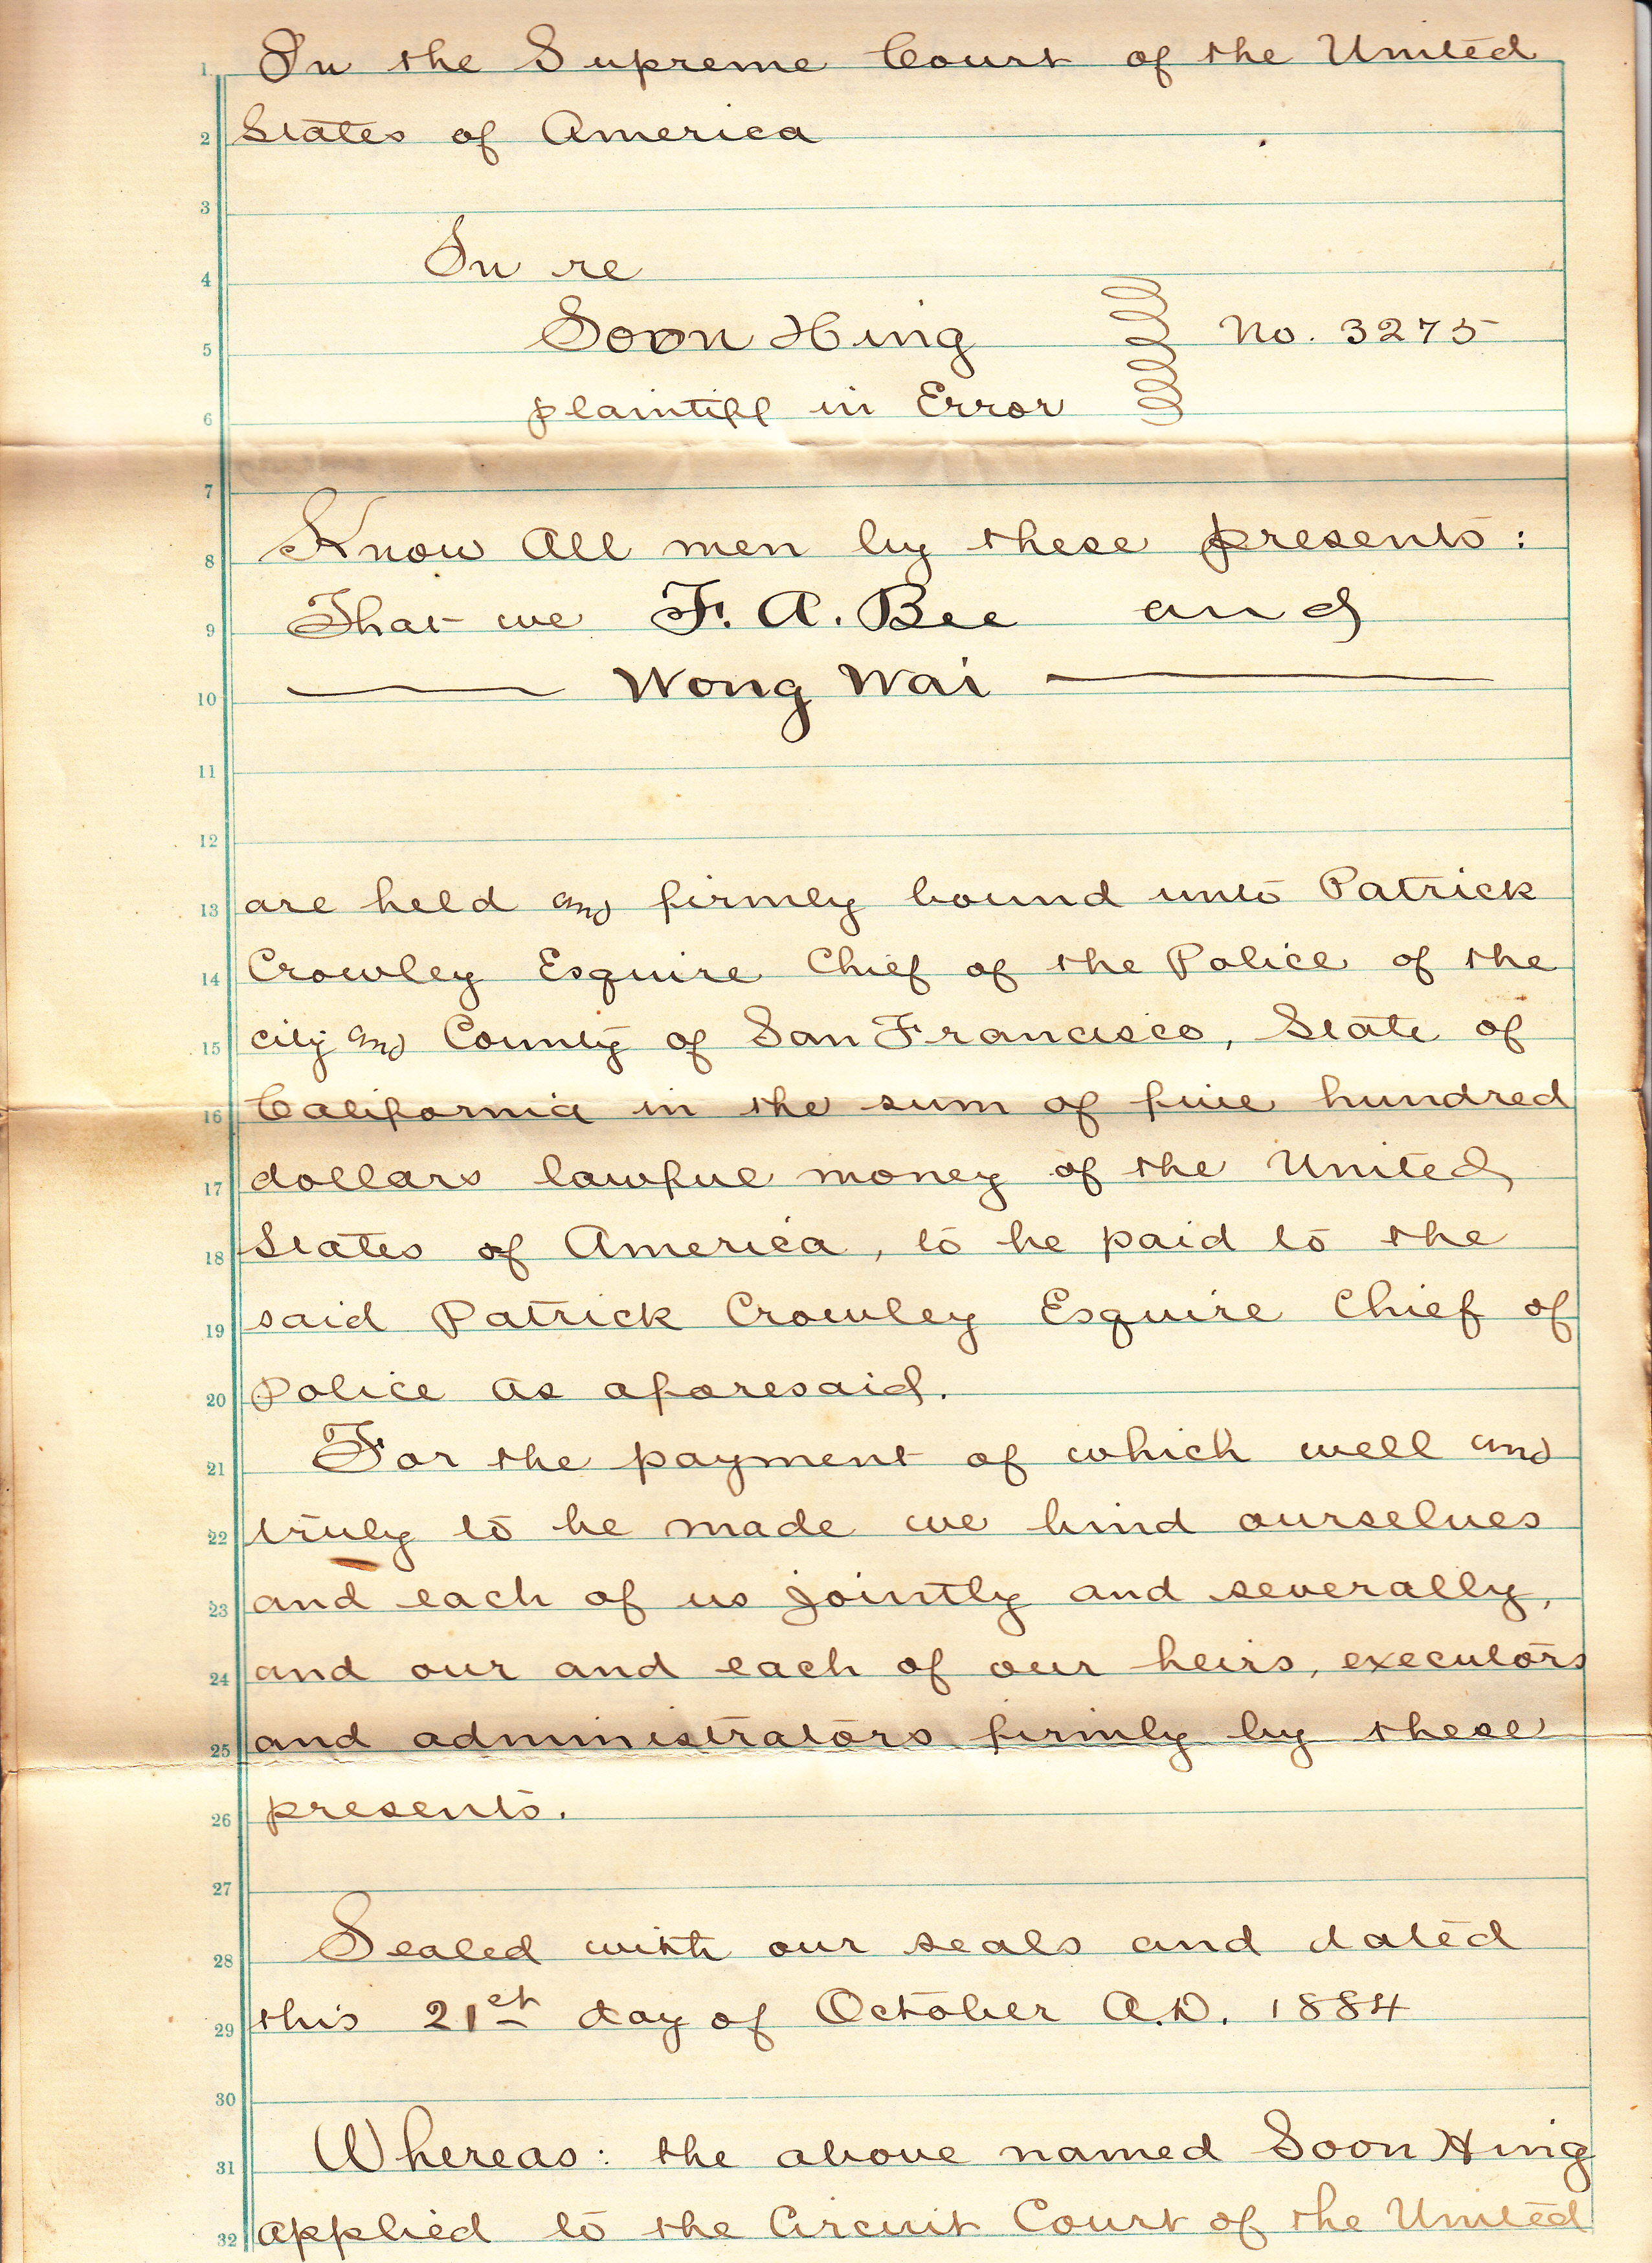 1 In the Supreme Court of the United
2 States of America
3
4 In re
5 Soon Hing No. 3275
6 plaintiff in Error
7
8 Know All men by these presents:
9 That we F. A. Bee and
10 Wong Wai
11
12
13 are held and firmly bound unto Patrick
14 Crowley Esquire Chief of the Police of the
15 city and County of San Francisco, State of
16 California in the sum of five hundred
17 dollars lawful money of the United
18 States of America, to be paid to the
19 said Patrick Crowley Esquire Chief of
20 Police as aforesaid.
21 For the payment of which well and
22 truly to be made we bind ourselves
23 and each of us jointly and severally,
24 and our and each of our heirs, executors
25 and administrators firmly by these
26 presents.
27
28 Sealed with our seals and dated
29 this 21st day of October A.D. 1884
30
31 Whereas: the above named Soon Hing
32 applied to the Circuit Court of the United